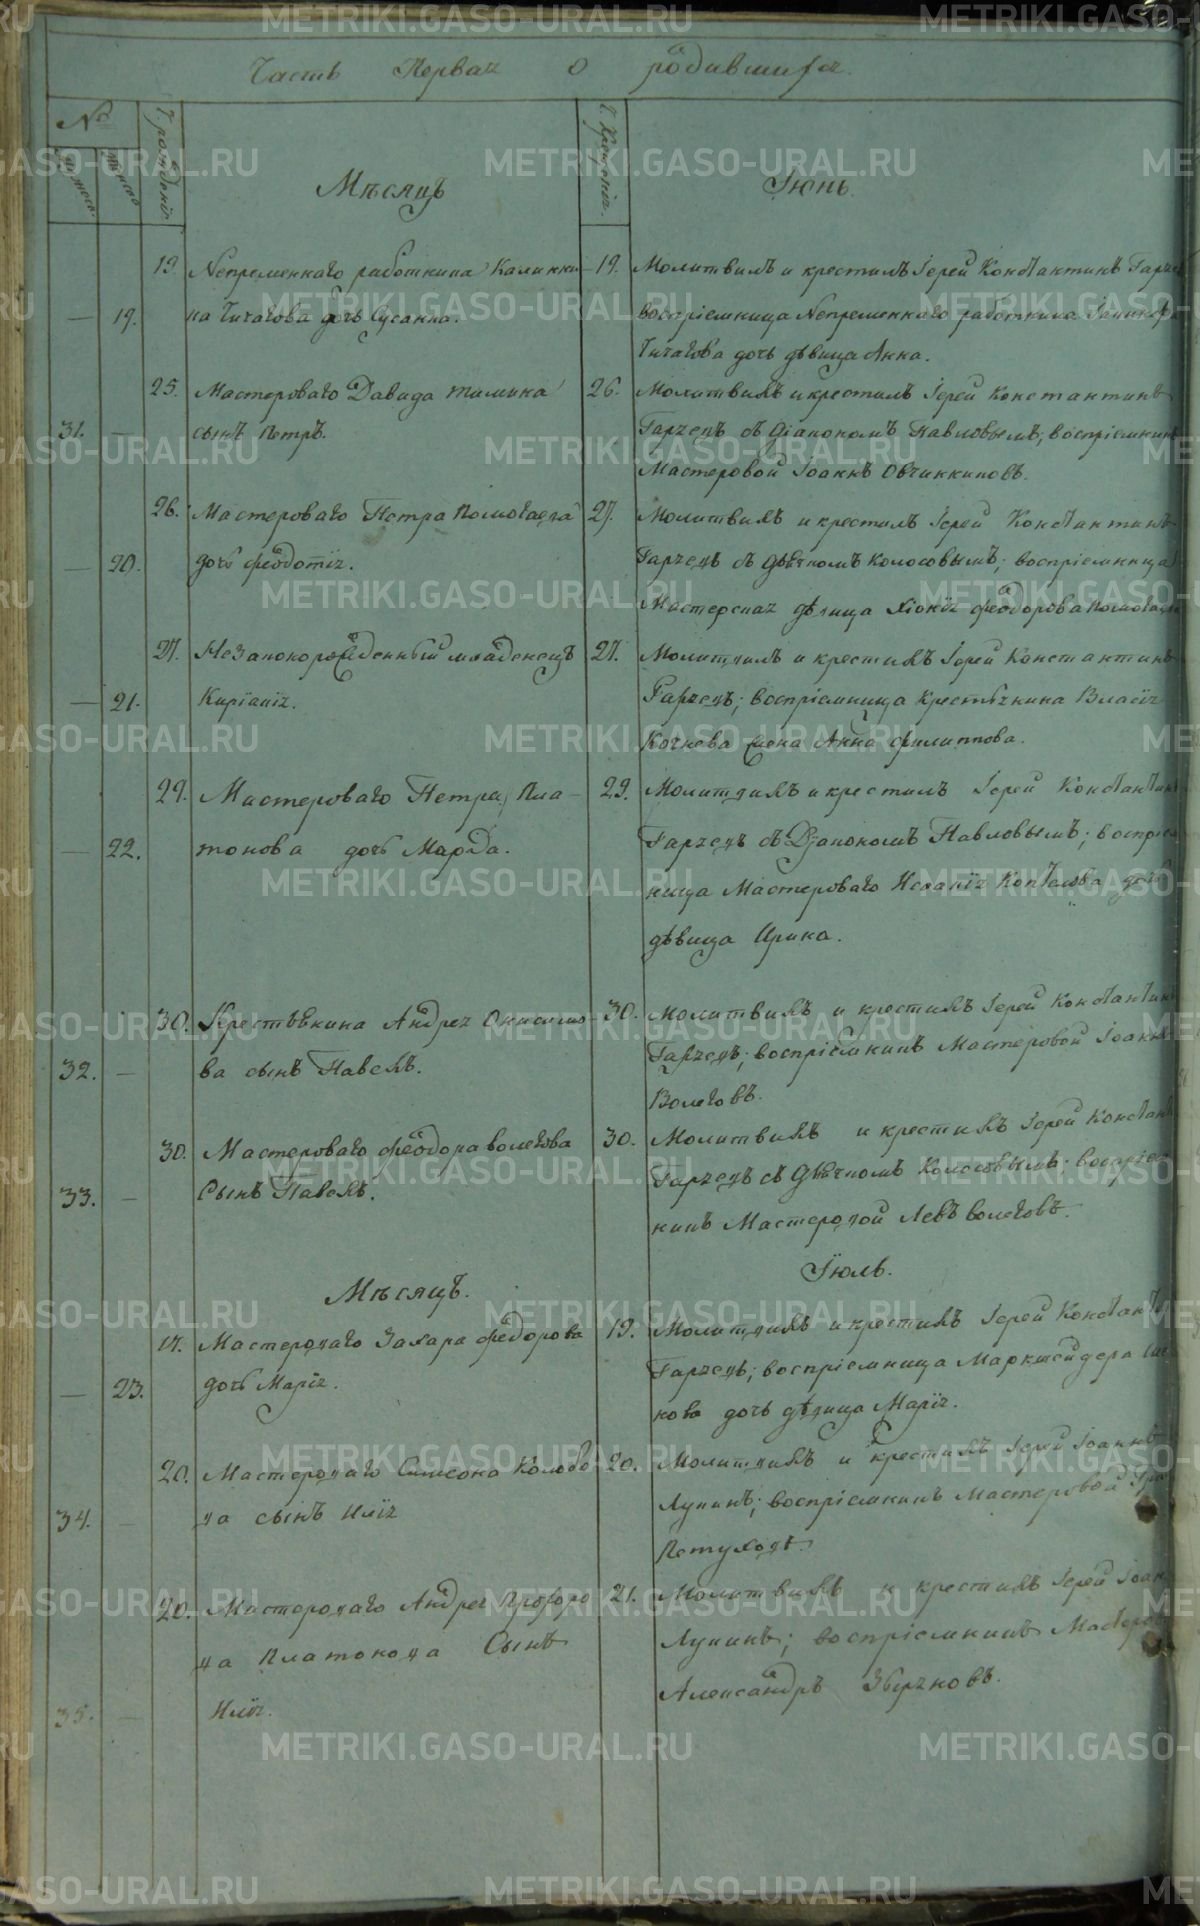 Часть Первая о родившихся.
№
Мѣсяцъ Іюнь.
19. Непременнаго работника Калинни- 19. Молитвилъ и крестилъ Іерей Константинъ
— 19. ка Чичагова дочь Сусанна. воспріемница Непременнаго работника
Чичагова дочь дѣвица Анна.
25. Мастероваго Давида Тимина 26. Молитвилъ и крестилъ Іерей Константинъ
31. — сынъ Петръ. Гаряевъ съ Діакономъ Павловымъ; воспріемникъ
Мастеровой Іоаннъ Овчинниковъ.
26. Мастероваго Петра 27. Молитвилъ и крестилъ Іерей Константинъ
— 20. дочь Феодотія. Гаряевъ съ Дьячкомъ Колосовымъ; воспріемница
Мастерская дѣвица Хіонія Феодорова
27. Незаконорожденный младенецъ 27. Молитвилъ и крестилъ Іерей Константинъ
— 21. Киріакія. Гаряевъ; воспріемница Крестьянина Власія
Кочнева жена Анна Филиппова.
29. Мастероваго Петра Пла- 29. Молитвилъ и крестилъ Іерей Константинъ
— 22. тонова дочь Марфа. Гаряевъ съ Діакономъ Павловымъ; воспріем
ница Мастероваго Исаакія дочь
дѣвица Ирина.
30. Крестьянина Андрея Онисимо- 30. Молитвилъ и крестилъ Іерей Константинъ
32. — ва сынъ Павелъ. Гаряевъ; воспріемникъ Мастеровой Іоаннъ
Волеговъ.
30. Мастероваго Феодора Волегова 30. Молитвилъ и крестилъ Іерей Констант
33. — Сынъ Павелъ. Гаряевъ съ Дьячкомъ Колосовымъ; воспріем
никъ Мастеровой Левъ Волеговъ.
Мѣсяцъ. Іюль.
17. Мастероваго Захара Федорова 19. Молитвилъ и крестилъ Іерей Констант
— 23. дочь Марія. Гаряевъ; воспріемница Маркшейдера
нова дочь дѣвица Марія.
20. Мастероваго Симеона Колобо 20. Молитвилъ и крестилъ Іерей Іоаннъ
34. — ва сынъ Илія Лунинъ; воспріемникъ Мастеровой
Петуховъ.
20. Мастероваго Андрея Прохоро 21. Молитвилъ и крестилъ Іерей Іоан
ва Платонова Сынъ Лунинъ; воспріемникъ Мастеров
35. — Илія. Александръ
METRIKI.GASO-URAL.RU